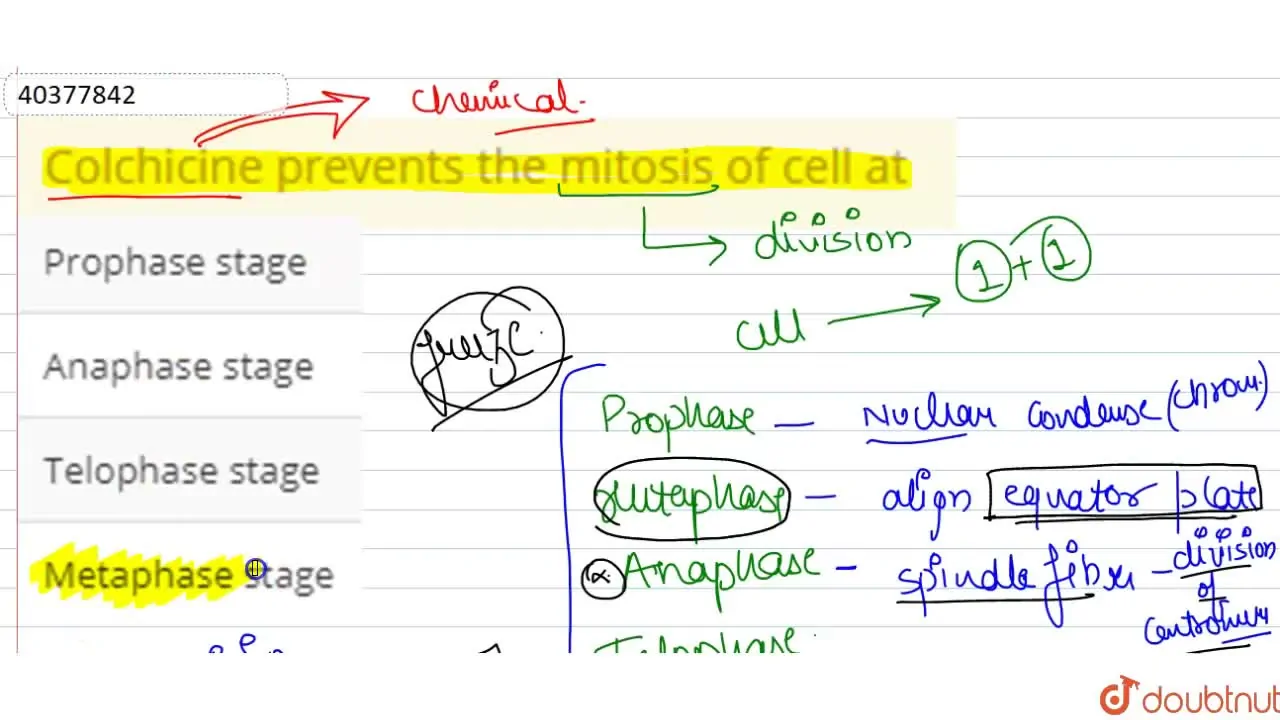 40377842
chemical.
Colchicine prevents the mitosis of cell at
division
Prophase stage
1 + 1
cell
freeze.
Anaphase stage
Prophase — Nuclear condense (chrom.)
Telophase stage
Metaphase — align equator plate
Anaphase — spindle fiber — division of centromere
Metaphase stage
Telophase
doubtnut